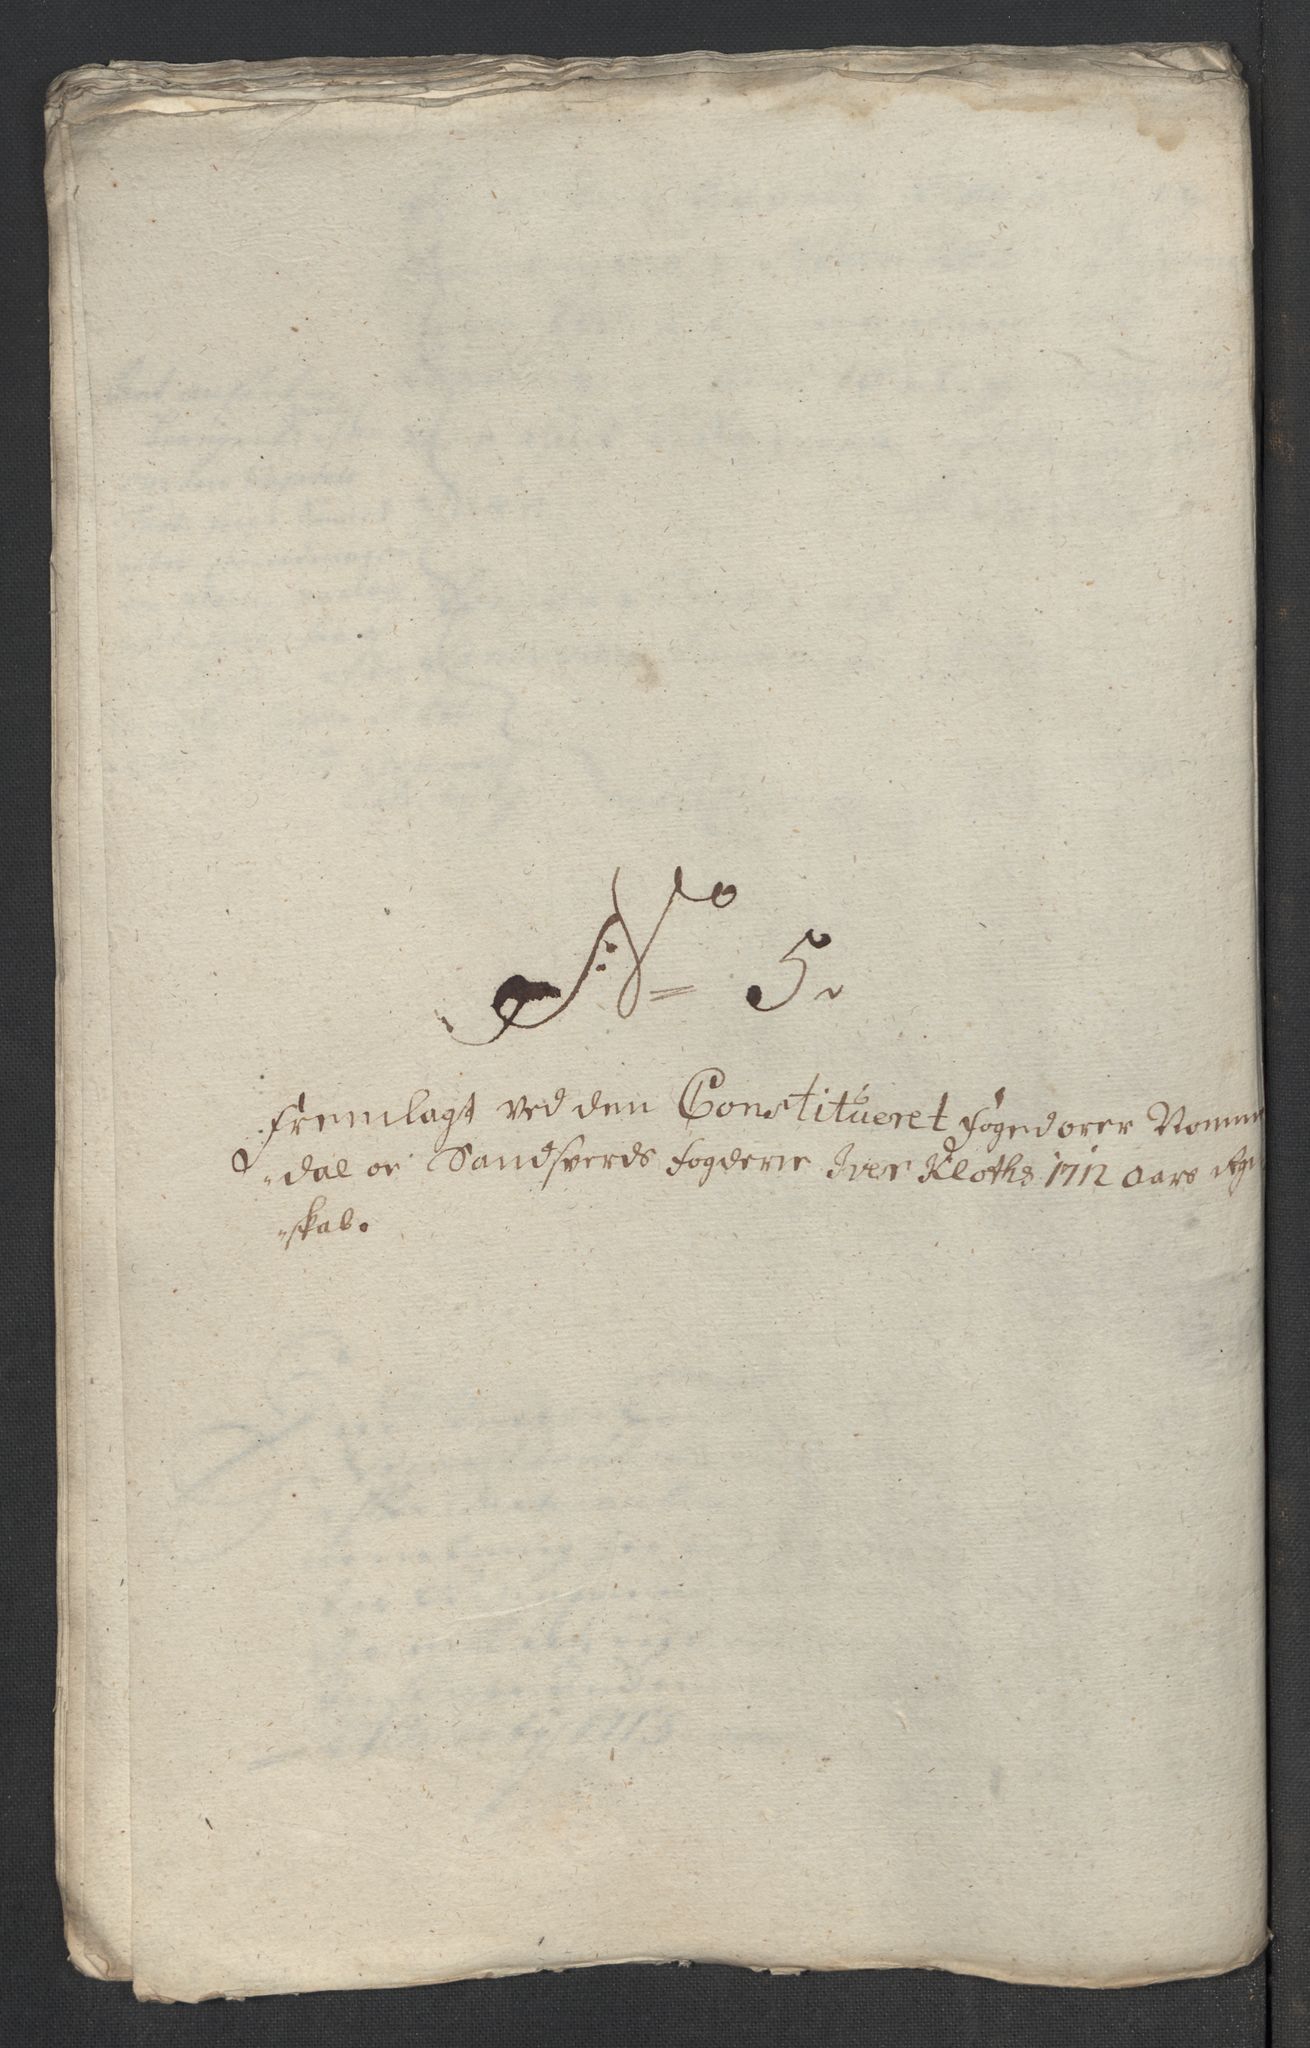 No 5.
Fremlagt ved den Constitueret foged over Nomme
dal oc Sandsverds fogderie Iver Kloths 1712 Aars Regn
skab.